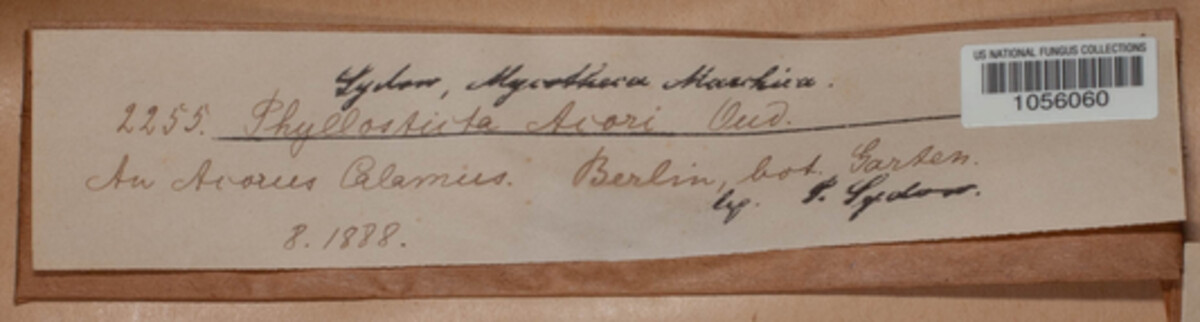 Sydow, Mycotheca Marchica.
US NATIONAL FUNGUS COLLECTIONS
1056060
2255. Phyllosticta Acori Oud.
An Acorus Calamus. Berlin, bot. Garten.
leg. P. Sydow.
8. 1888.